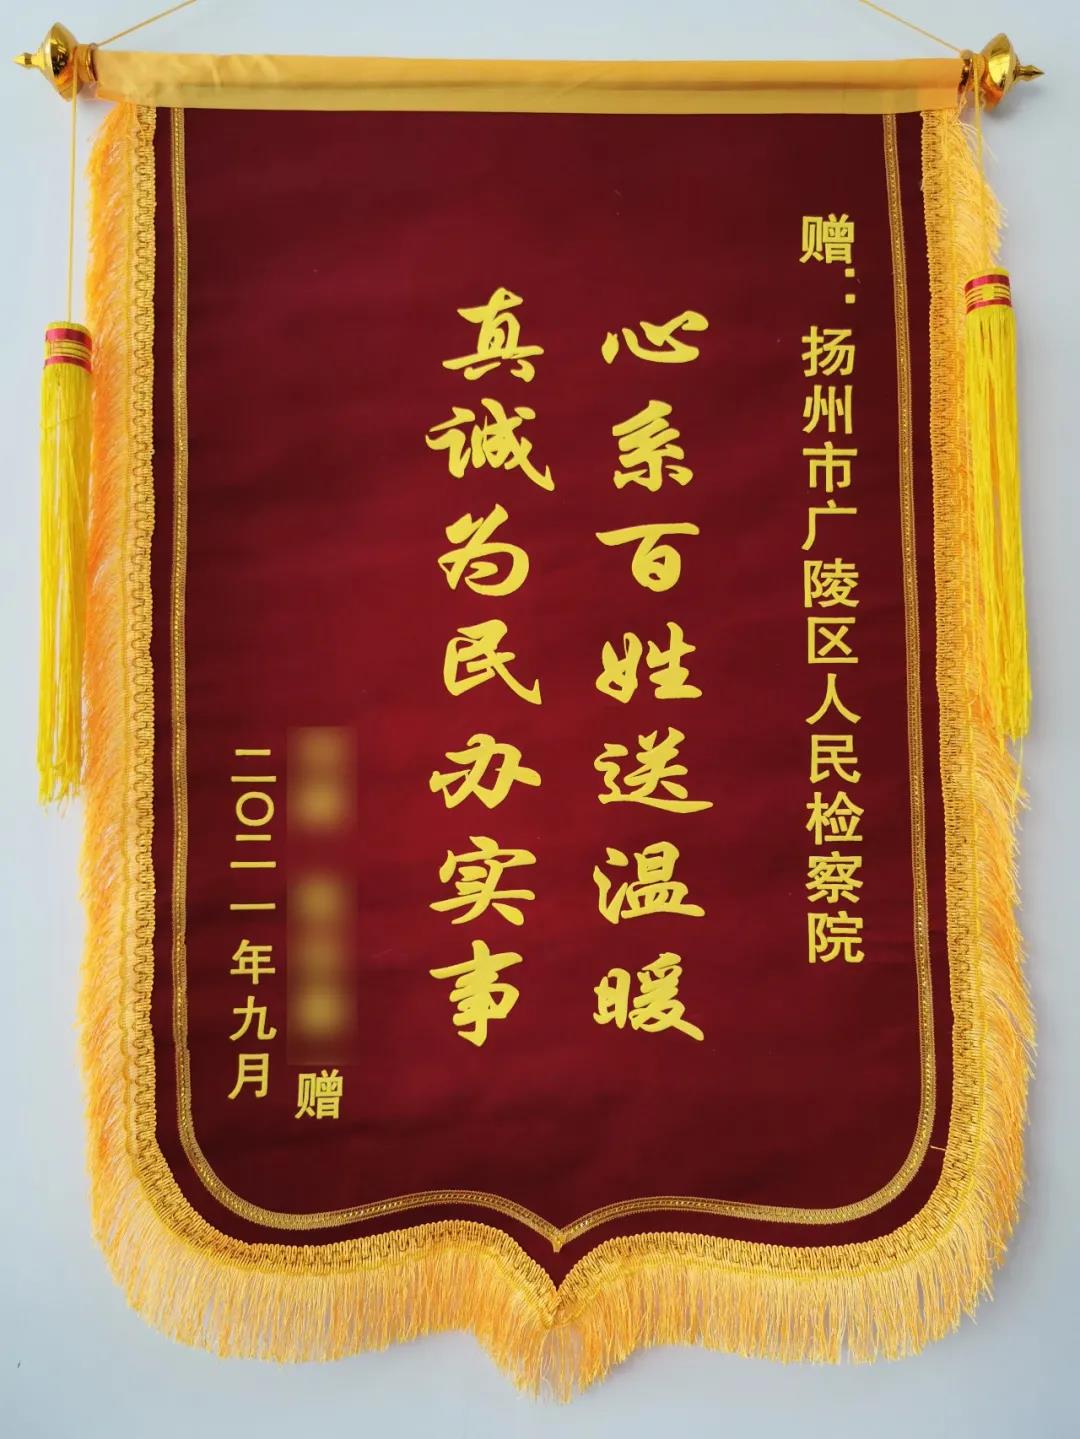 赠：扬州市广陵区人民检察院
心系百姓送温暖
真诚为民办实事
赠
二〇二一年九月